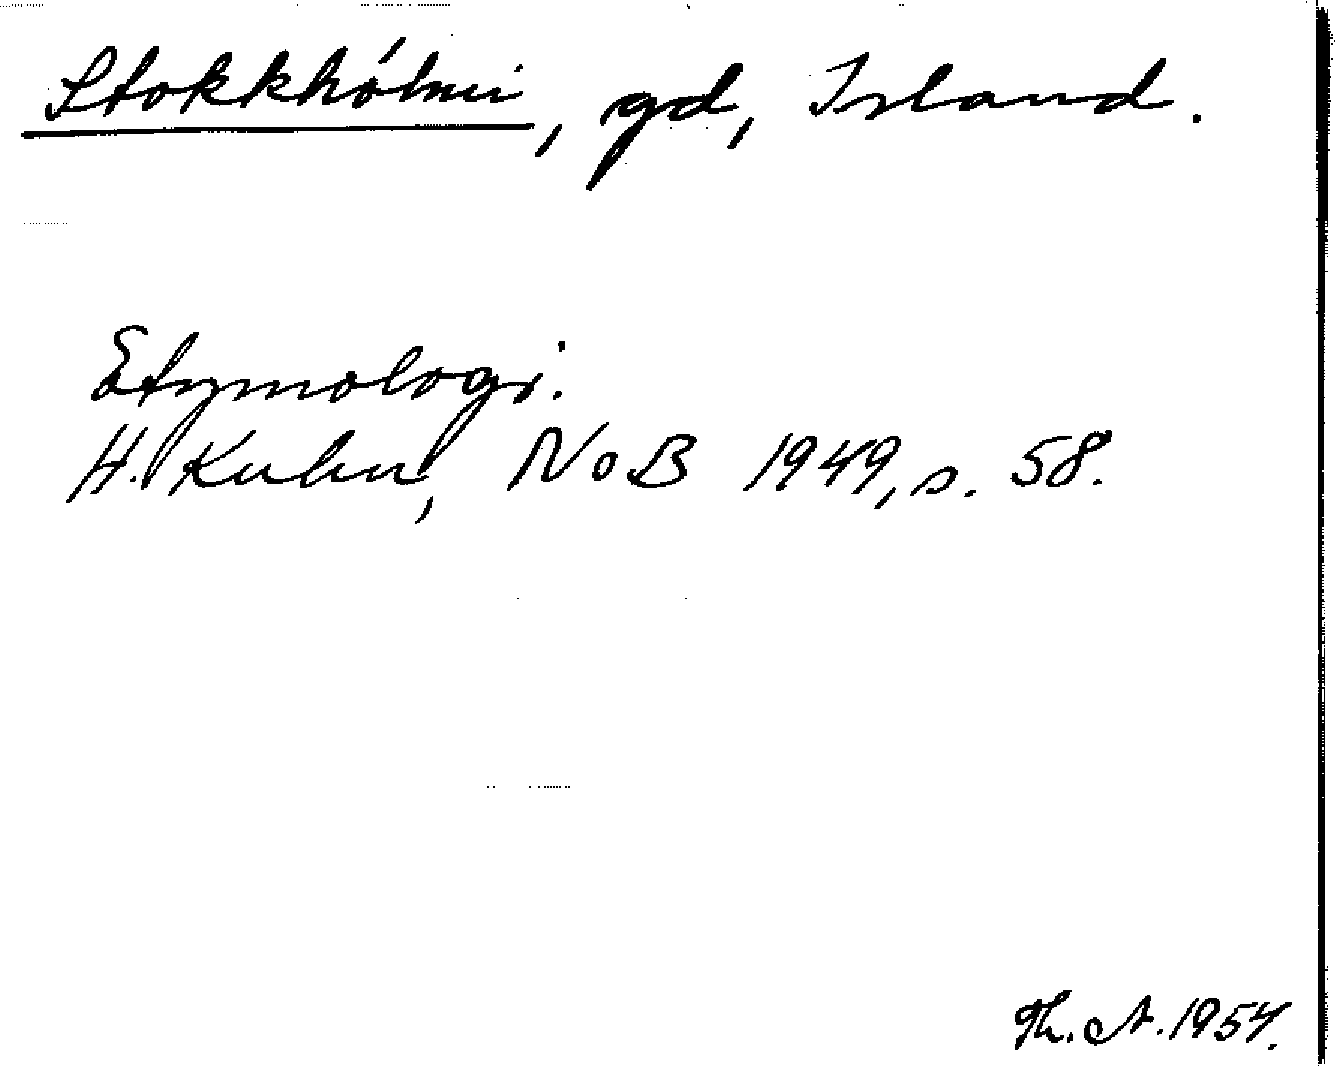 Stokkhólmi, gd, Island.
Etymologi.
H. Kuhn, NoB 1949, s. 58.
Th. A. 1954.